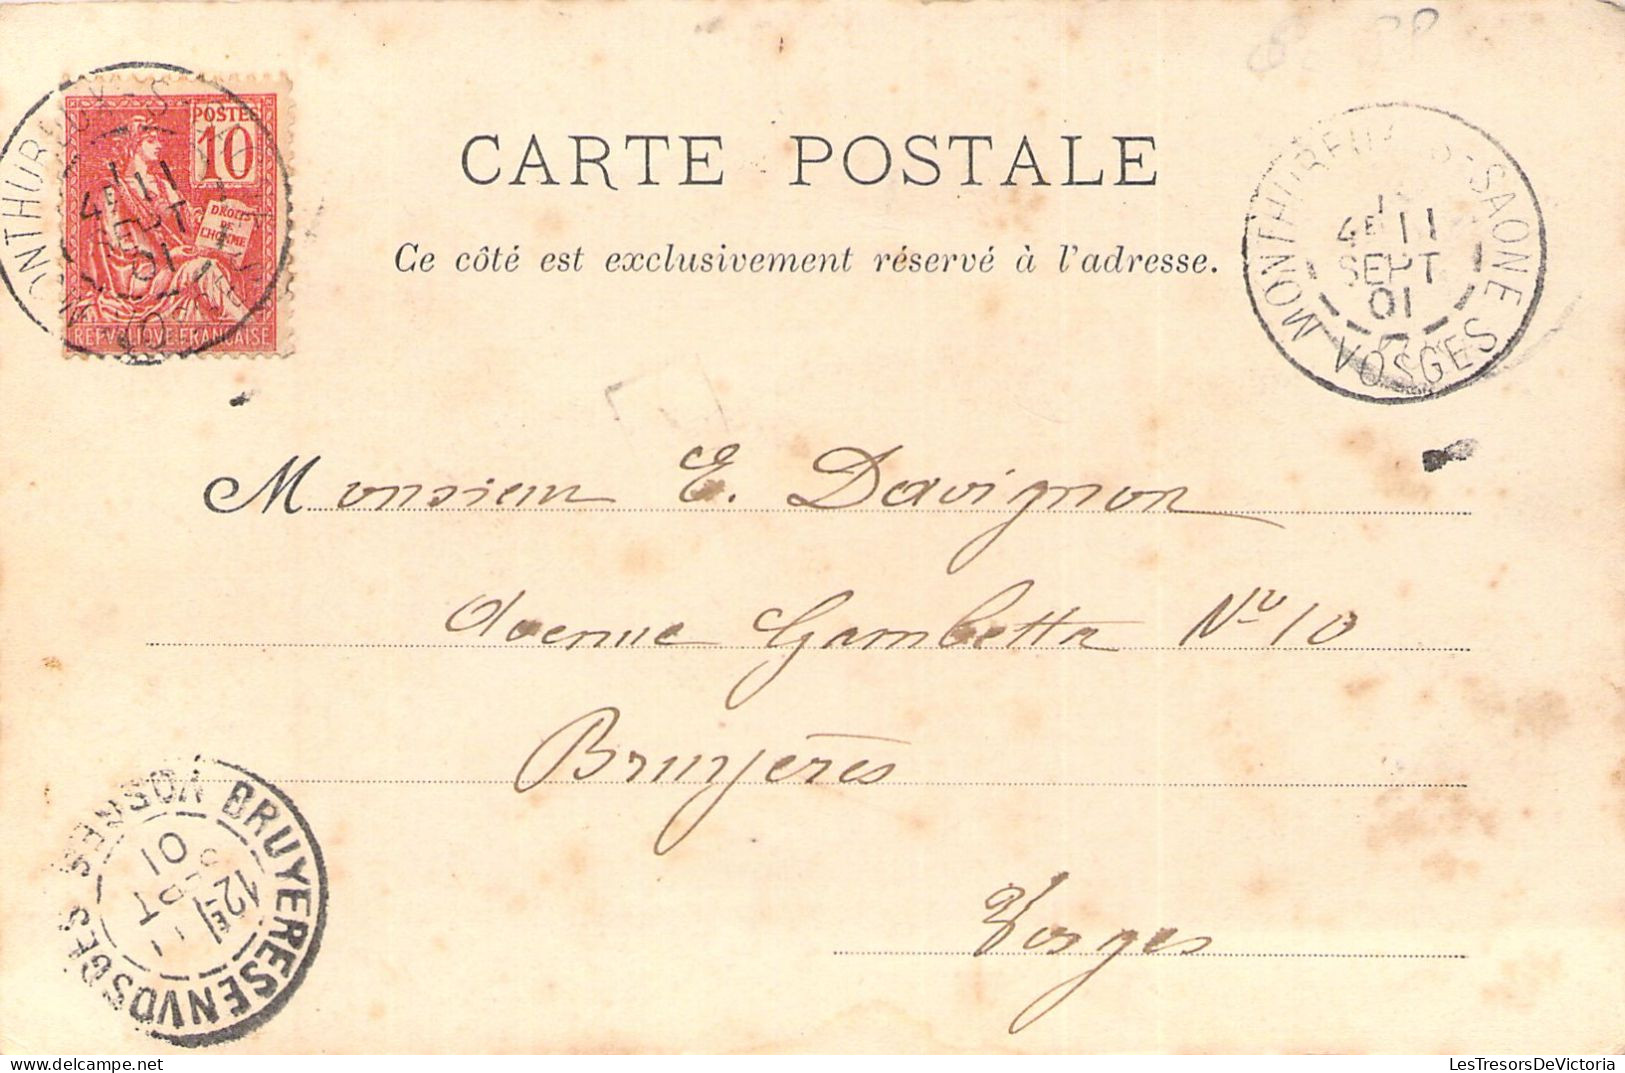 CARTE POSTALE
Ce côté est exclusivement réservé à l'adresse.
POSTES
10
DROITS
DE
L'HOMME
REPVBLIQVE FRANÇAISE
MONTHUREUX
4E 11
SEPT
01
MONTHUREUX S SAONE
4E 11
SEPT
01
VOSGES
Monsieur E. Davignon
Avenue Gambetta No 10
Bruyères
Vosges
BRUYERES EN VOSGES
VOSGES
12
01
LesTresorsDeVictoria